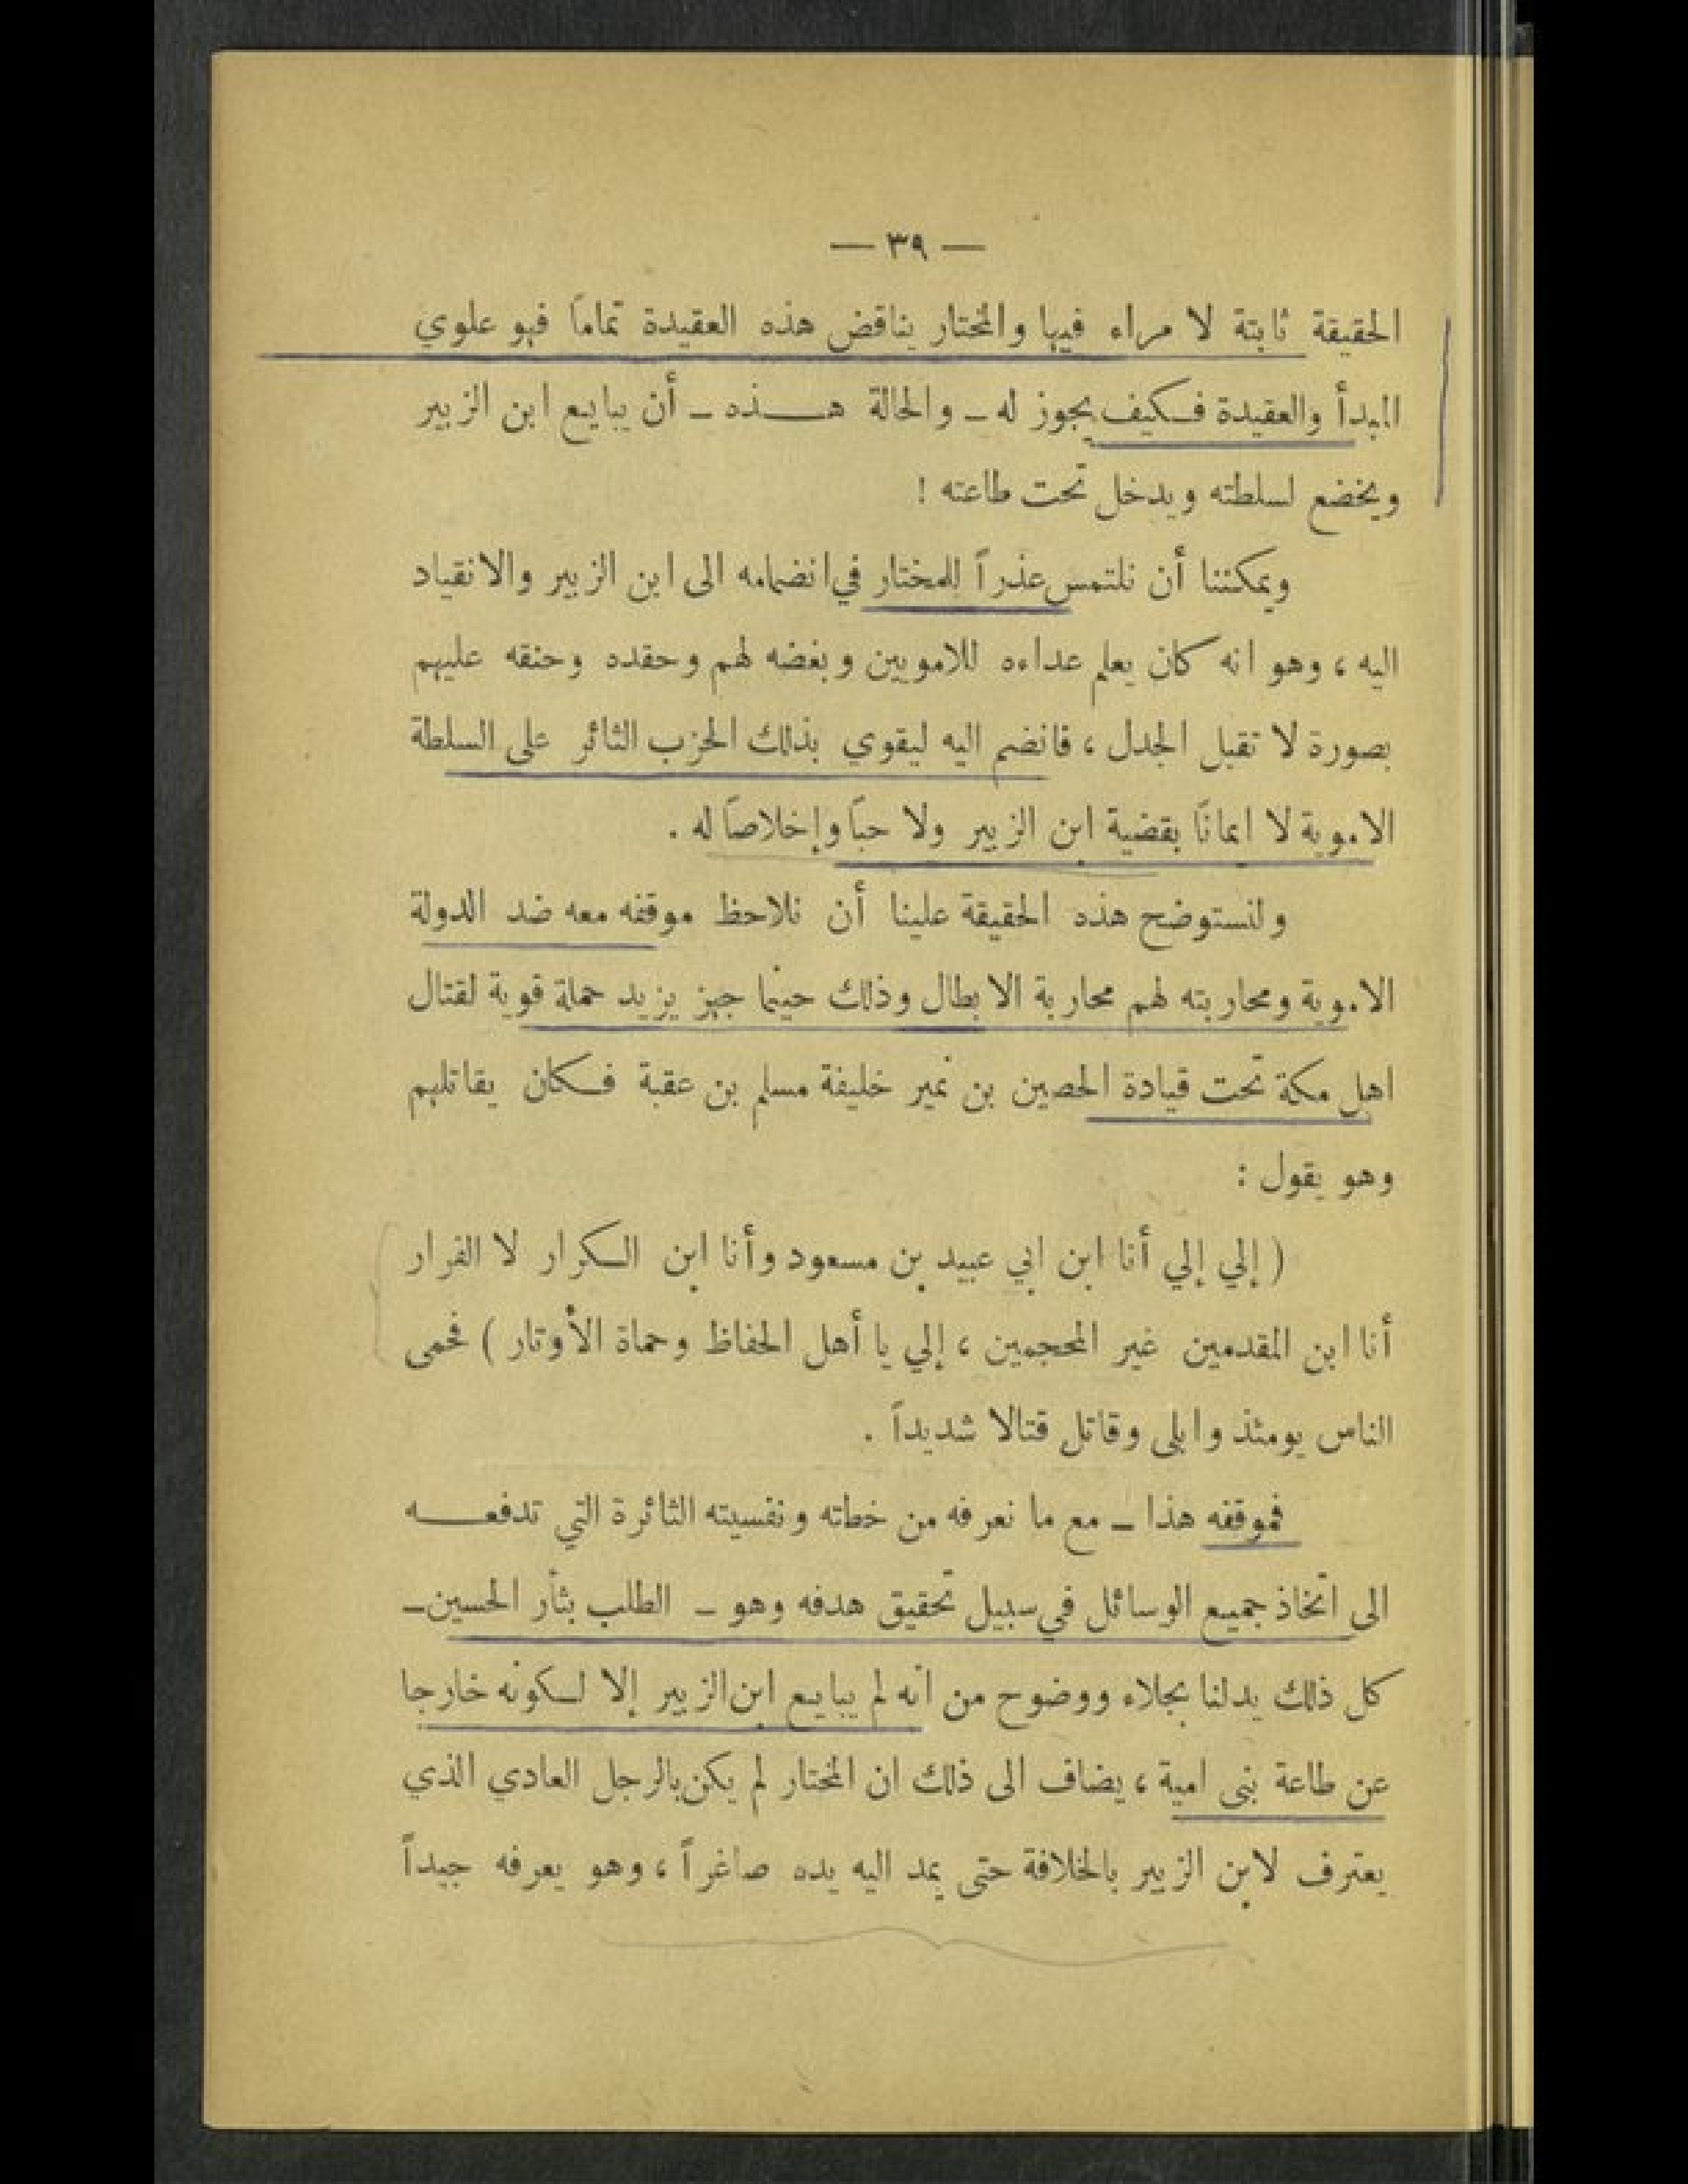 — ٣٩ —
الحقيقة ثابتة لا مراء فيها والمختار يناقض هذه العقيدة تماماً فهو علوي
المبدأ والعقيدة فكيف يجوز له ـ والحالة هـذه ـ أن يبايع ابن الزبير
ويخضع لسلطته ويدخل تحت طاعته !
ويمكننا أن نلتمس عذراً للمختار في انضمامه الى ابن الزبير والانقياد
اليه ، وهو انه كان يعلم عداءه للامويين وبغضه لهم وحقده وحنقه عليهم
بصورة لا تقبل الجدل ، فانضم اليه ليقوي بذلك الحزب الثائر على السلطة
الاموية لا ايماناً بقضية ابن الزبير ولا حباً وإخلاصاً له .
ولنستوضح هذه الحقيقة علينا أن نلاحظ موقفه معه ضد الدولة
الاموية ومحاربته لهم محاربة الابطال وذلك حينما جهز يزيد حملة قوية لقتال
اهل مكة تحت قيادة الحصين بن نمير خليفة مسلم بن عقبة فكان يقاتلهم
وهو يقول :
( إلي إلي أنا ابن ابي عبيد بن مسعود وأنا ابن الكرار لا الفرار
أنا ابن المقدمين غير المحجمين ، إلي يا أهل الحفاظ وحماة الأوتار ) فحمى
الناس يومئذ وابلى وقاتل قتالا شديداً .
فموقفه هذا ـ مع ما نعرفه من خطاته ونفسيته الثائرة التي تدفعـه
الى اتخاذ جميع الوسائل في سبيل تحقيق هدفه وهو ـ الطلب بثأر الحسين ـ
كل ذلك يدلنا بجلاء ووضوح من أنه لم يبايع ابن الزبير إلا لكونه خارجا
عن طاعة بني امية ، يضاف الى ذلك ان المختار لم يكن بالرجل العادي الذي
يعترف لابن الزبير بالخلافة حتى يمد اليه يده صاغراً ، وهو يعرفه جيداً